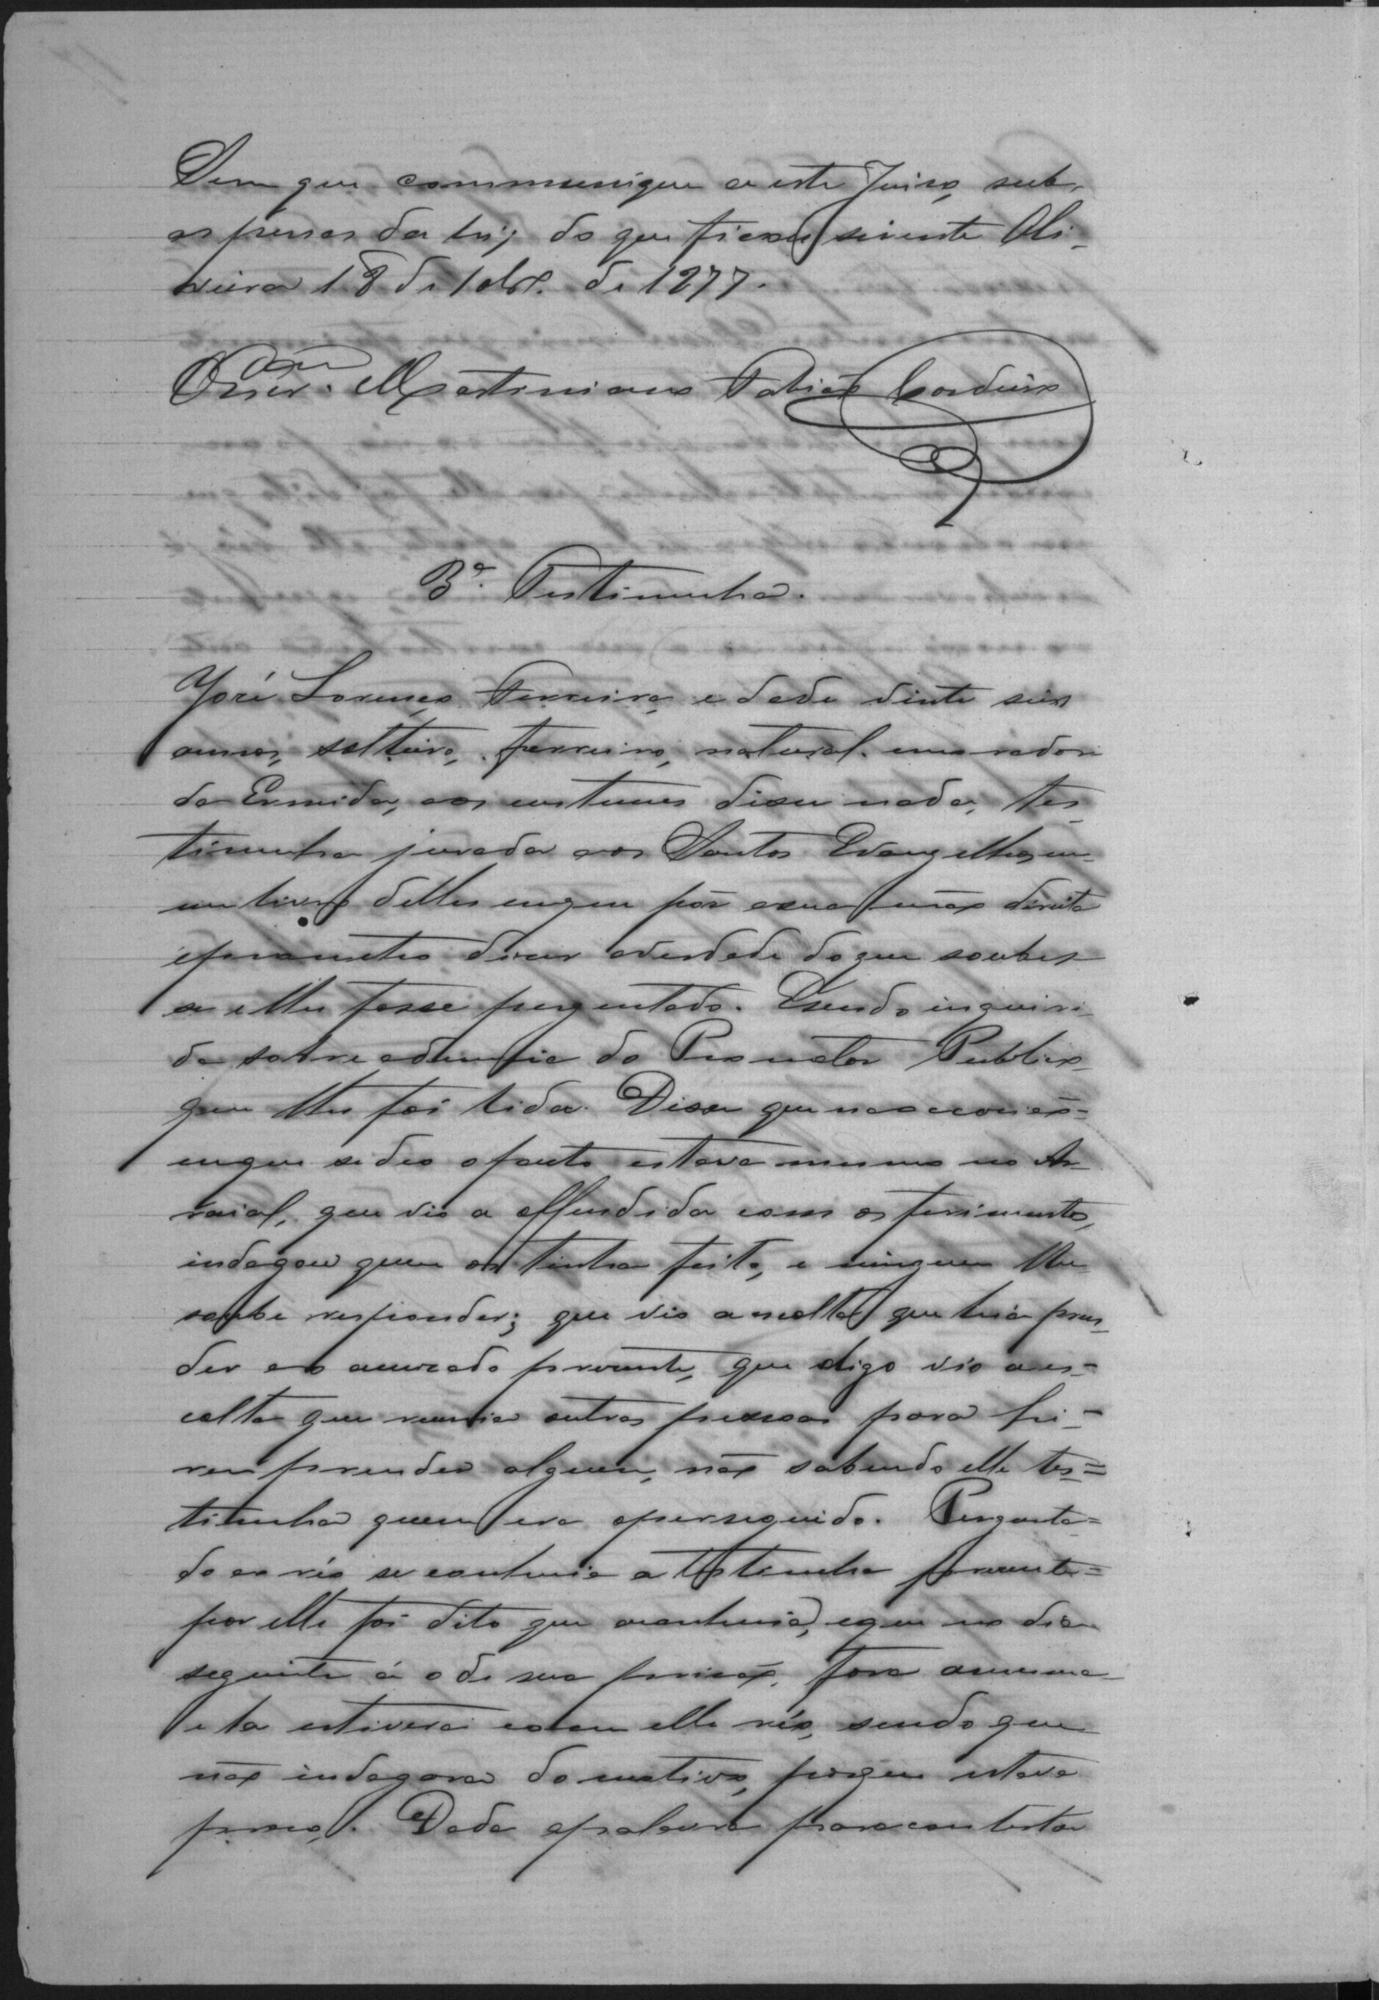 Sem que communique a este Juiso, sub
as penas da lei, do que ficou sciente Oli-
veira 18 de 10bro. de 1877.
Martiniano Fabião Cordeiro
3ª. Testimunha.
José Lourenço Ferreira, edade vinte seis
annos, solteiro, ferreiro, natural morador
da Ermida, aos costumes disse nada, tes-
timunha jurada aos Santos Evangelhos em
um livro delles em que pôs a sua mão direita
e prometeo diser a verdade do que soubes-
se e lhe fosse perguntado. E sendo inquiri-
da sobre a denuncia do Promotor Publico,
que lhe foi lida. Disse que na occasião
em que se deo o facto estava mesmo no Ar-
raial, que vio a offendida com os ferimentos,
indagou quem os tinha feito, e ninguem lhe
soube responder; que vio a escolta que hia pren-
der ao accusado presente, que digo vio a es-
colta que reunia outras pessoas para hi-
rem prender alguem, não sabendo elle tes-
timunha quem era o perseguido. Pergunta-
do ao réo se conhecia a testimunha presente
por elle foi dito que a conhecia, e que no dia
seguinte á o de sua prisão, fora a mesma
e la estivera com elle réo, sendo que
não indagara do motivo, porque estava
preso. Dada a palavra para contestar